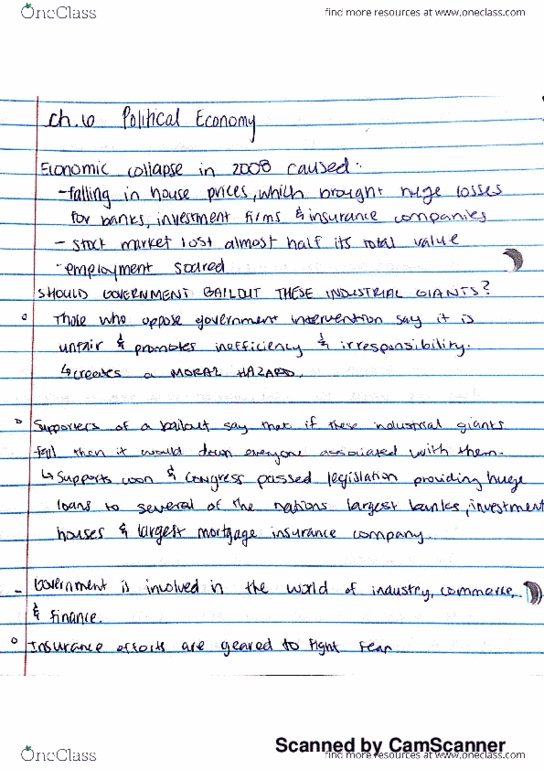 OneClass
find more resources at www.oneclass.com
Ch.6 Political Economy
Economic collapse in 2008 caused:
-falling in house prices, which brought huge losses
for banks, investment firms & insurance companies
- stock market lost almost half its total value
-employment soared
SHOULD GOVERNMENT BAILOUT THESE INDUSTRIAL GIANTS?
Those who oppose government intervention say it is
unfair & promotes inefficiency & irresponsibility.
↳creates a MORAL HAZARD.
Supporters of a bailout say that if these industrial giants
fell then it would down everyone associated with them.
↳ Supports won & Congress passed legislation providing huge
loans to several of the nations largest banks, investment
houses & largest mortgage insurance company.
- Government is involved in the world of industry, commerce,
& finance.
Insurance efforts are geared to fight fear
Scanned by CamScanner
OneClass
find more resources at www.oneclass.com